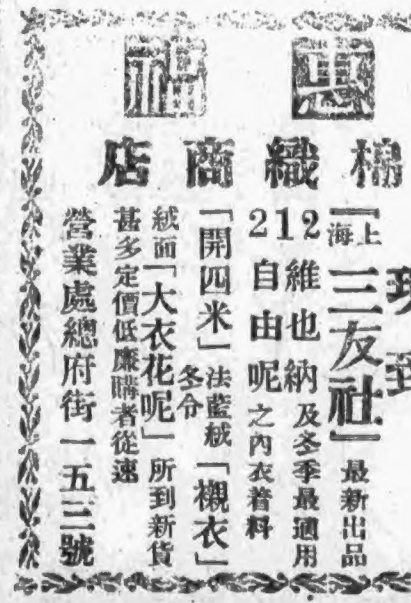 惠福
棉織商店
上海『三友社』最新出品
212
維也納及冬季最適用
自由呢之內衣着料
「開四米」法藍絨冬令「襯衣」
絨面「大衣花呢」所到新貨
甚多定價低廉購者從速
營業處總府街一五三號